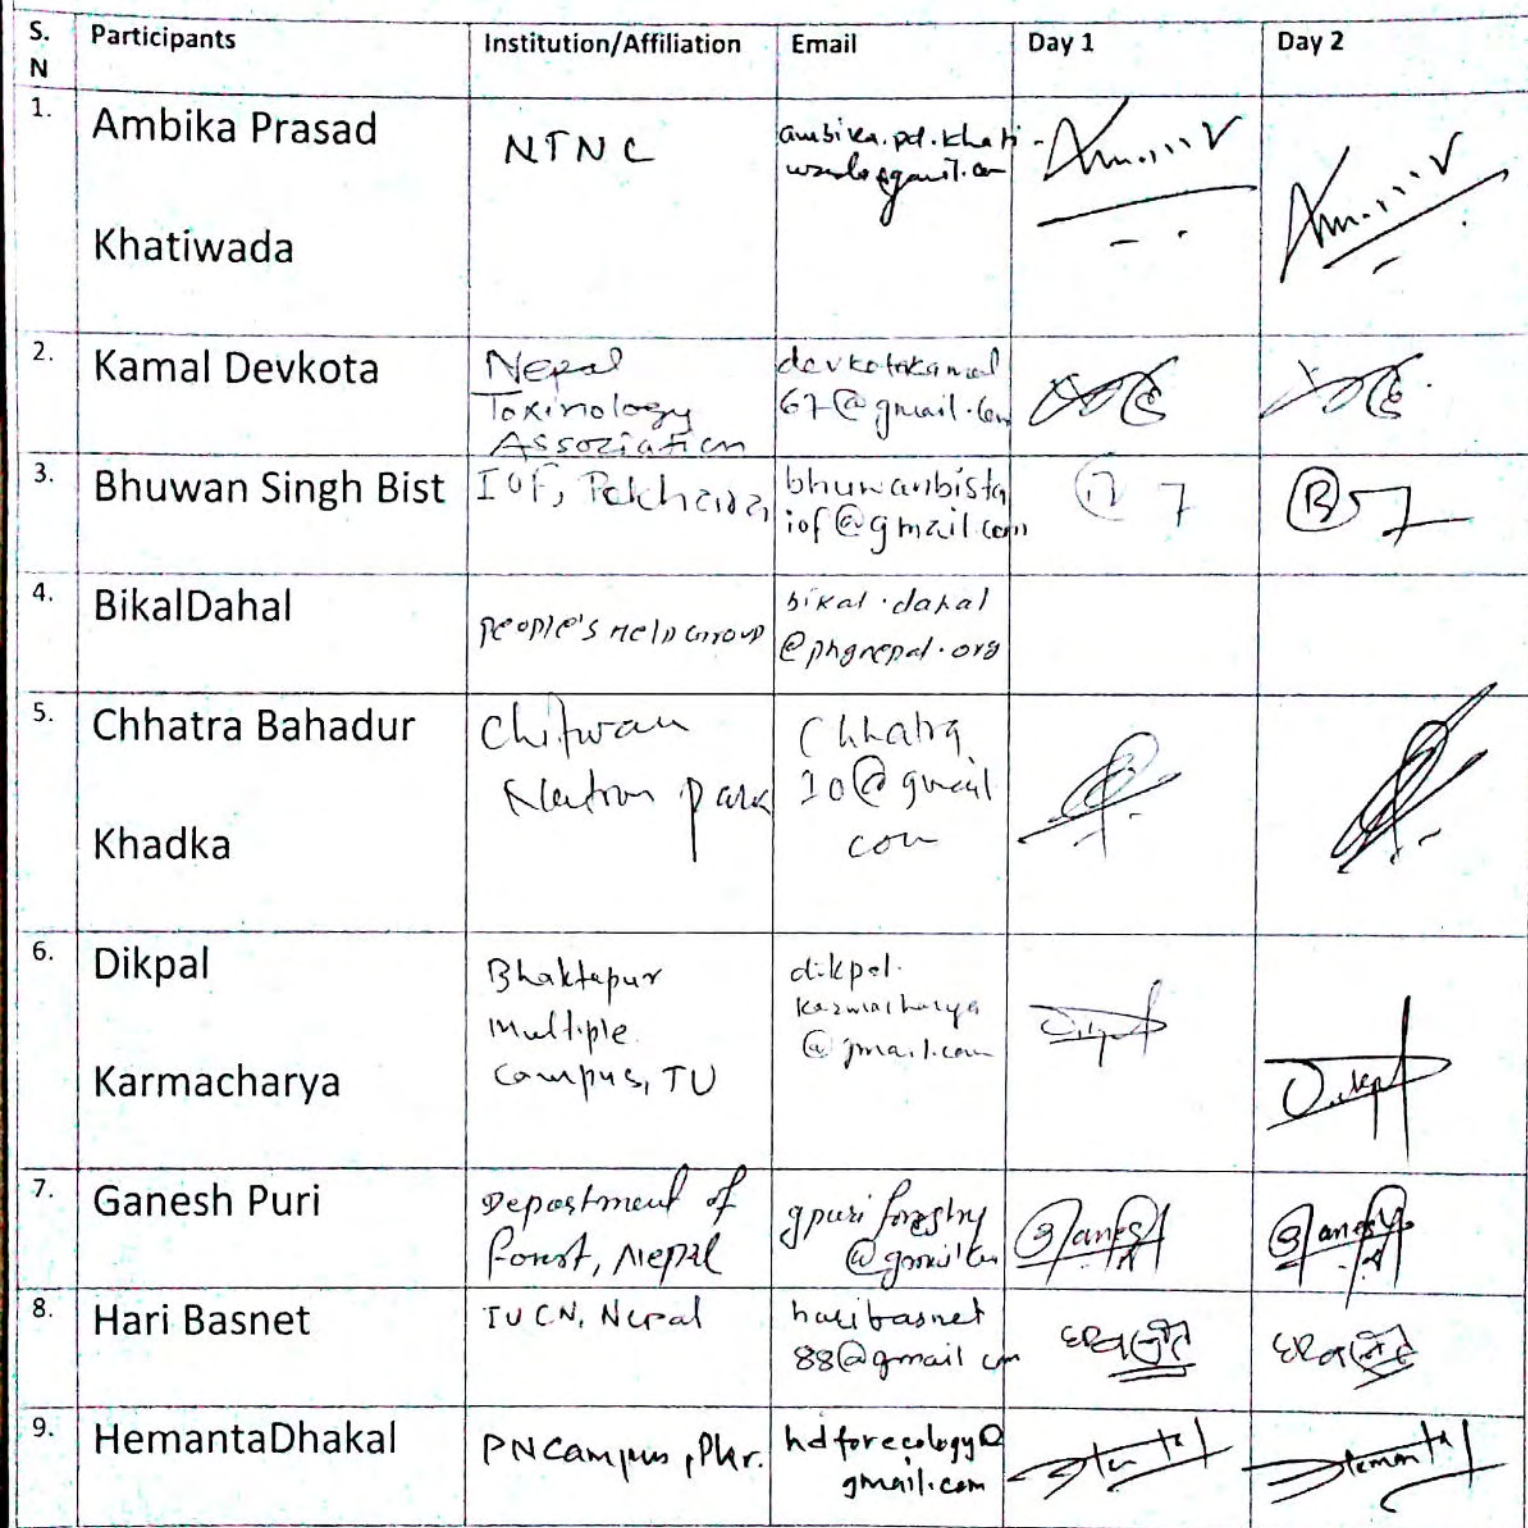 S. N Participants Institution/Affiliation Email Day 1 Day 2
1. Ambika Prasad
Khatiwada
NTNC
ambika.pd.khati-
2. Kamal Devkota
Nepal
Toxinology
Association
devkotakamal
67@gmail.com
3. Bhuwan Singh Bist
IOF, Pokhara,
bhuwanbista
iof@gmail.com
4. BikalDahal
People's Help Group
bikal.dahal
@phgnepal.org
5. Chhatra Bahadur
Khadka
Chitwan
Park
Chhatra
10@gmail
com
6. Dikpal
Karmacharya
Bhaktapur
Multiple
Campus, TU
dikpal.
karmacharya
@gmail.com
Dikpal
7. Ganesh Puri
Department of
forest, Nepal
gpuri forestry
@gmail.com
Ganesh
Ganesh
8. Hari Basnet
IUCN, Nepal
haribasnet
88@gmail com
9. HemantaDhakal
PNCampus, Pkr.
hdforecology@
gmail.com
Hemanta